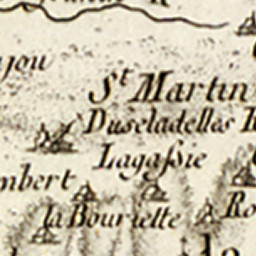 jou
St Martin
Duseladellas
Lagassie
mbert
la Bouriette
Ro